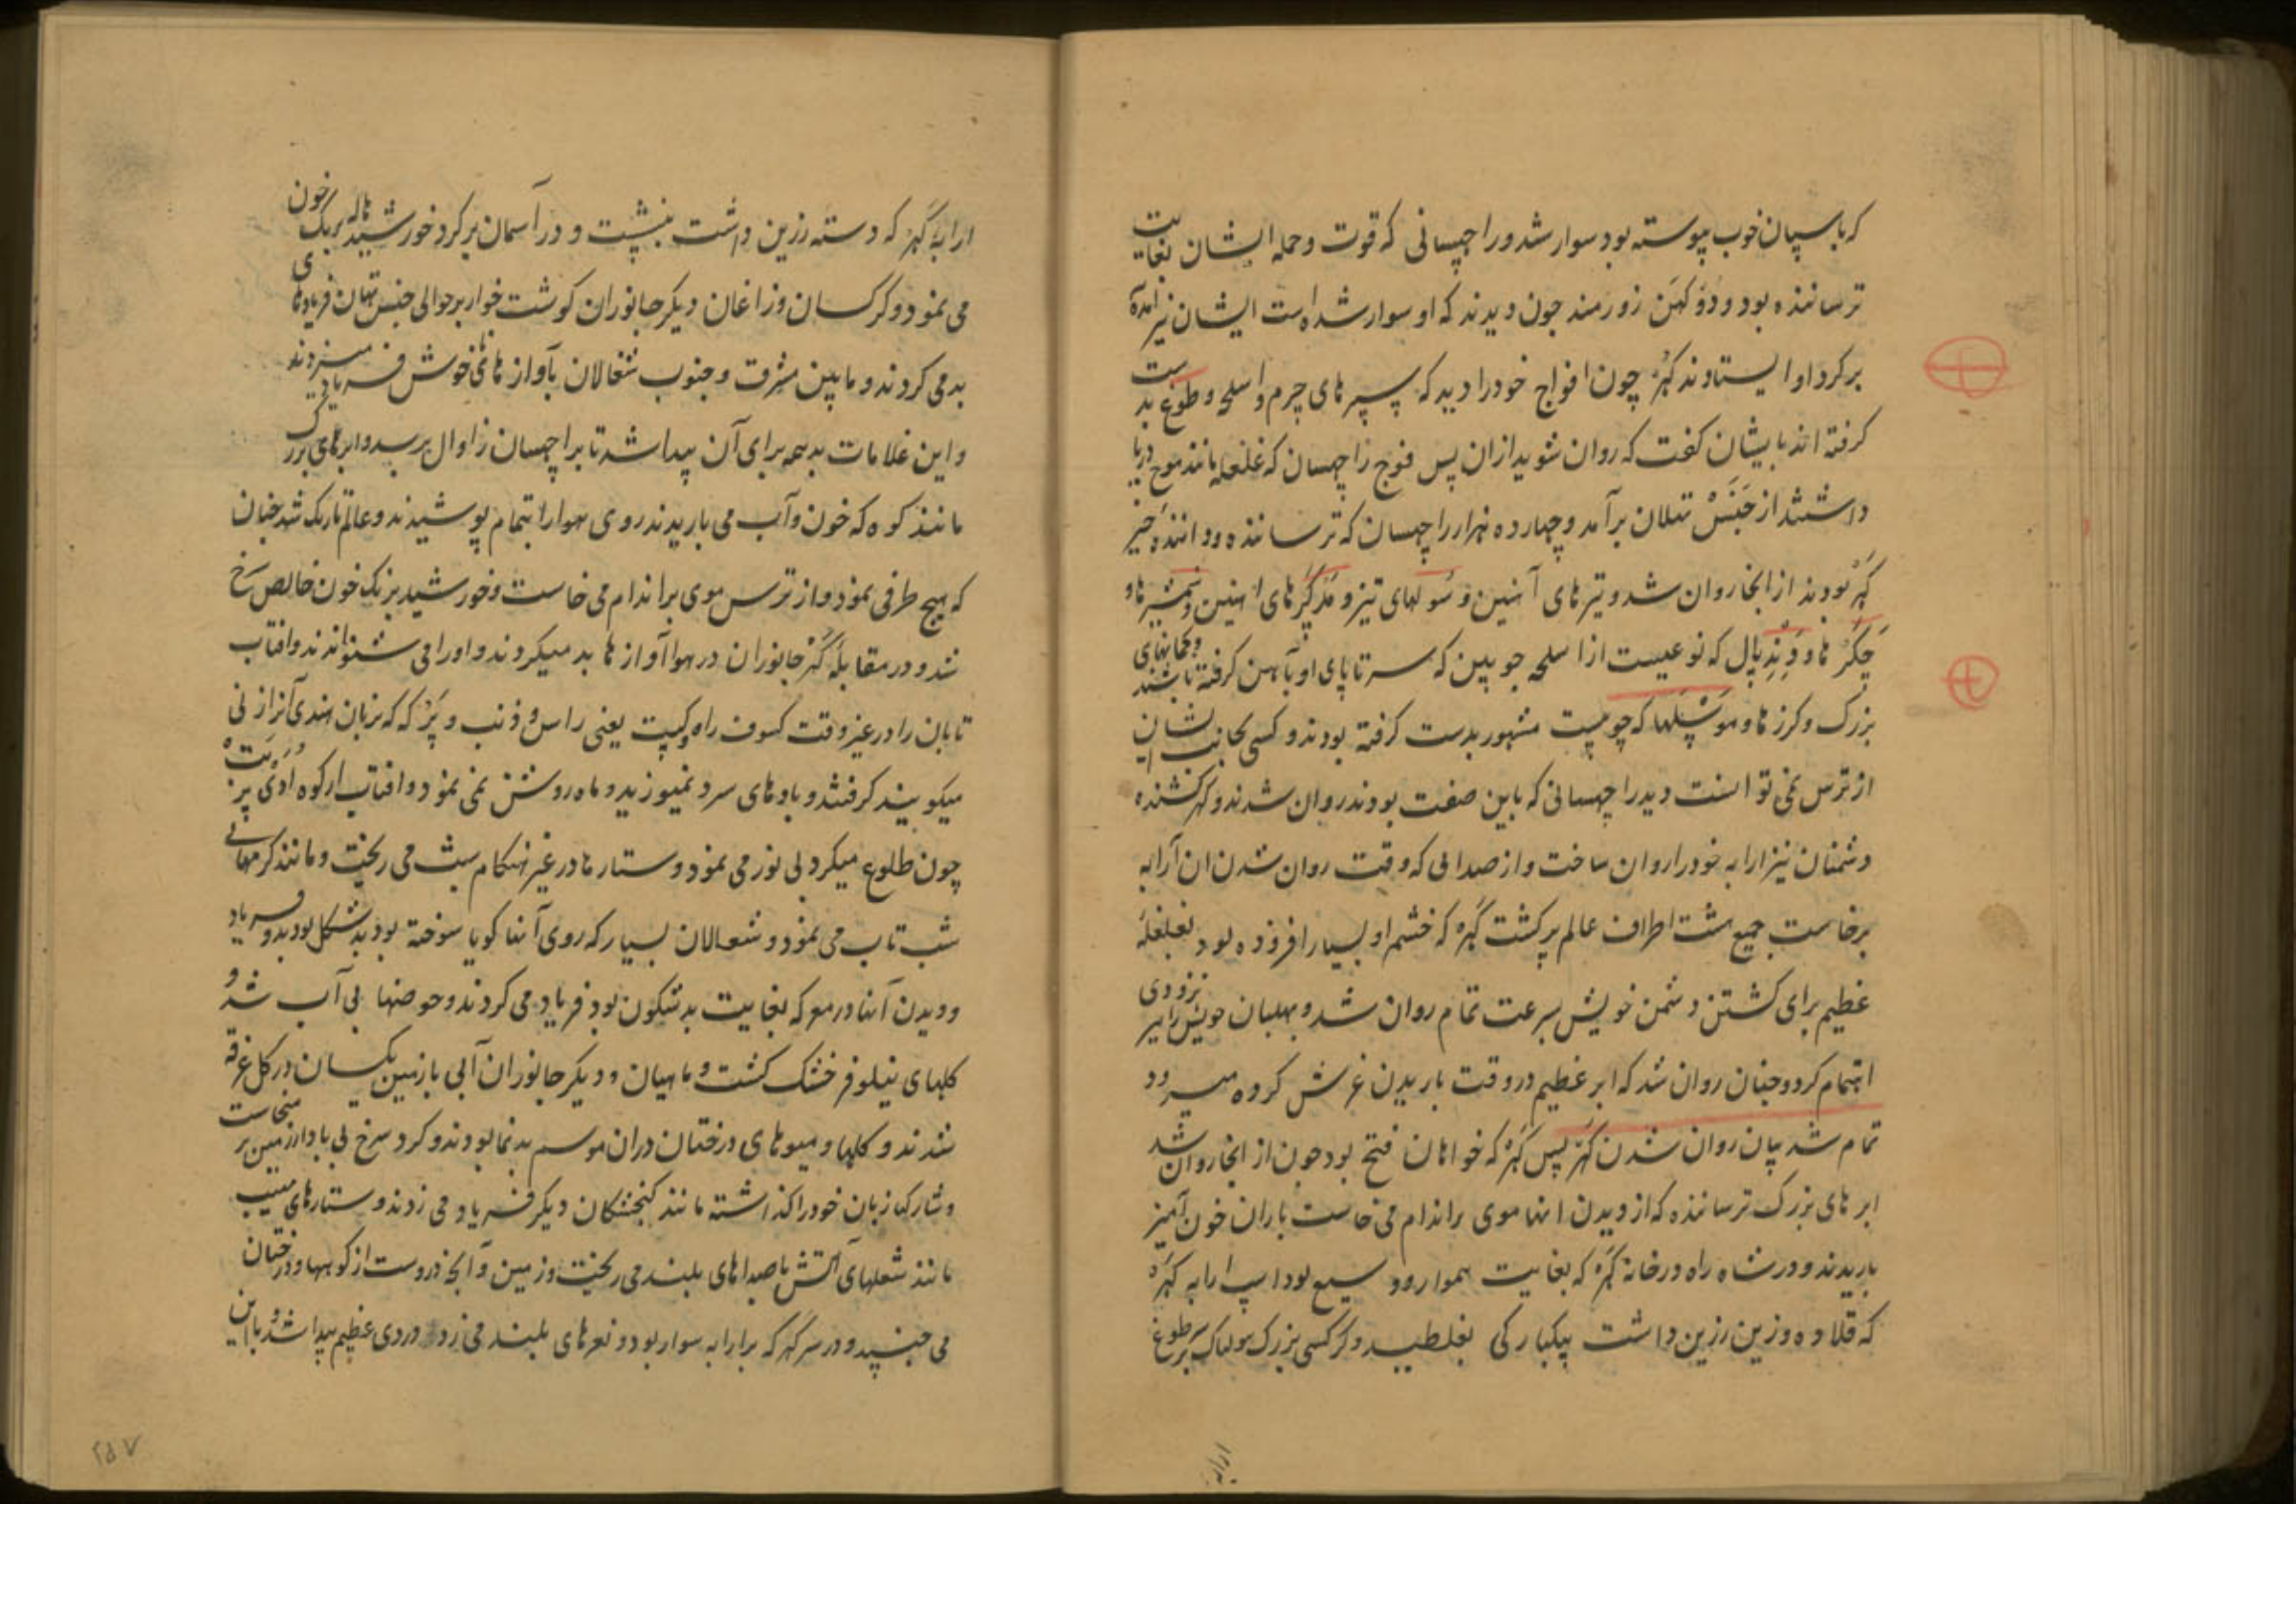 که باسپان خوب پیوسته بود سوار شد و راچهسانی که قوت و حمله ایشان بغایت
ترساننده بود و دوکهن زورمند چون دیدند که او سوار شده است ایشان نیز آمده
برکرد او ایستادند کهر چون افواج خود را دید که سپرهای چرم و اسلحه و طوغ بدست
کرفته اند بایشان کفت که روان شوید ازان پس فوج راچهسان که غلغله مانند موج دریا
داشتند از جنس تتلان برآمد و چهارده هزار راچهسان که ترساننده و دوانندهٔ خیز
کهر بودند از انجا روان شد و تیرهای آهنین و سولهای تیز و مدکرهای اهنین و شمشیرها و
چکرها و دندپال که نوعیست از اسلحه چوبین که سر تا پای او بآهن کرفته باشند و کمانهای
بزرک و کرزها و موشلها که چوبیست مشهور بدست کرفته بودند و کسی بجانب ایشان
از ترس نمی توانست دید راچهسانی که باین صفت بودند روان شدند و کهر کشنده
دشمنان نیز ارابه خود را روان ساخت و از صدایی که وقت روان شدن ان آرابه
برخاست جمیع هشت اطراف عالم پر کشت کهر که خشم او بسیار افزوده بود بغلغلهٔ
عظیم برای کشتن دشمن خویش بسرعت تمام روان شد و بهلبان خویش را بر زودی
اهتمام کرد و چنان روان شد که ابر عظیم در وقت باریدن غرش کرده میرود
تمام شد بیان روان شدن کهر پس کهر که خواهان فتح بود چون از انجا روان شد
ابرهای بزرک ترساننده که از دیدن انها موی بر اندام می خاست باران خون آمیز
باریدند و در شاه راه در خانهٔ کهر که بغایت هموار و وسیع بود اسپ ارابه کهر
که قلاده و زین زرین داشت بیکبارکی بغلطید و کرکسی بزرک هولناک بر طوغ
ارابه
ارابهٔ کهر که دسته زرین داشت بنشست و در آسمان برکرد خورشید هاله برنک خون
می نمود و کرکسان و زاغان و دیکر جانوران کوشت خوار بر حوالی جنس تهان فریادهای
بد می کردند و مابین مشرق و جنوب شغالان بآوازهای ناخوش فریاد میزدند
و این علامات بد همه برای آن پیدا شد تا براچهسان زاوال برسد و ابرهای بزرک
مانند کوه که خون و آب می باریدند روی هوا را بتمام پوشیدند و عالم تاریک شد چنان
که هیچ طرفی نمی نمود و از ترس موی بر اندام می خاست و خورشید برنک خون خالص سرخ
شد و در مقابلهٔ کهر جانوران در هوا آوازها بد میکردند و او را می شنوانیدند و افتاب
تابان را در غیر وقت کسوف راه و کیت یعنی راس و ذنب و پرکه که بزبان هندی آنرا
میکویند کرفتند و بادهای سرد نمیوزید و ماه روشن نمی نمود و افتاب از کوه اودی پربت
چون طلوع میکرد بی نور می نمود و ستارها در غیر هنکام شب می ریخت و مانند کرمهای
شب تاب می نمود و شغالان بسیار که روی آنها کویا سوخته بود بدشکل بودند و فریاد
و دیدن آنها در معرکه بغایت بدشکون بود فریاد می کردند و حوضها بی آب شد و
کلهای نیلوفر خشک کشت و ماهیان و دیکر جانوران آبی با زمین یکسان در کل غرقه
شدند و کلها و میوهای درختان دران موسم بدنما بودند و کرد سرخ بی باد از زمین بر میخاست
و شارکها زبان خود را کذاشته مانند کنجشکان دیکر فریاد می زدند و ستارهای مهیب
مانند شعلهای آتش با صداهای بلند می ریخت و زمین و آنچه دروست از کوهها و درختان
می جنبید و در سر کهر که بر ارابه سوار بود و نعرهای بلند می زد دردی عظیم پیدا شد و با این
۲۵۷